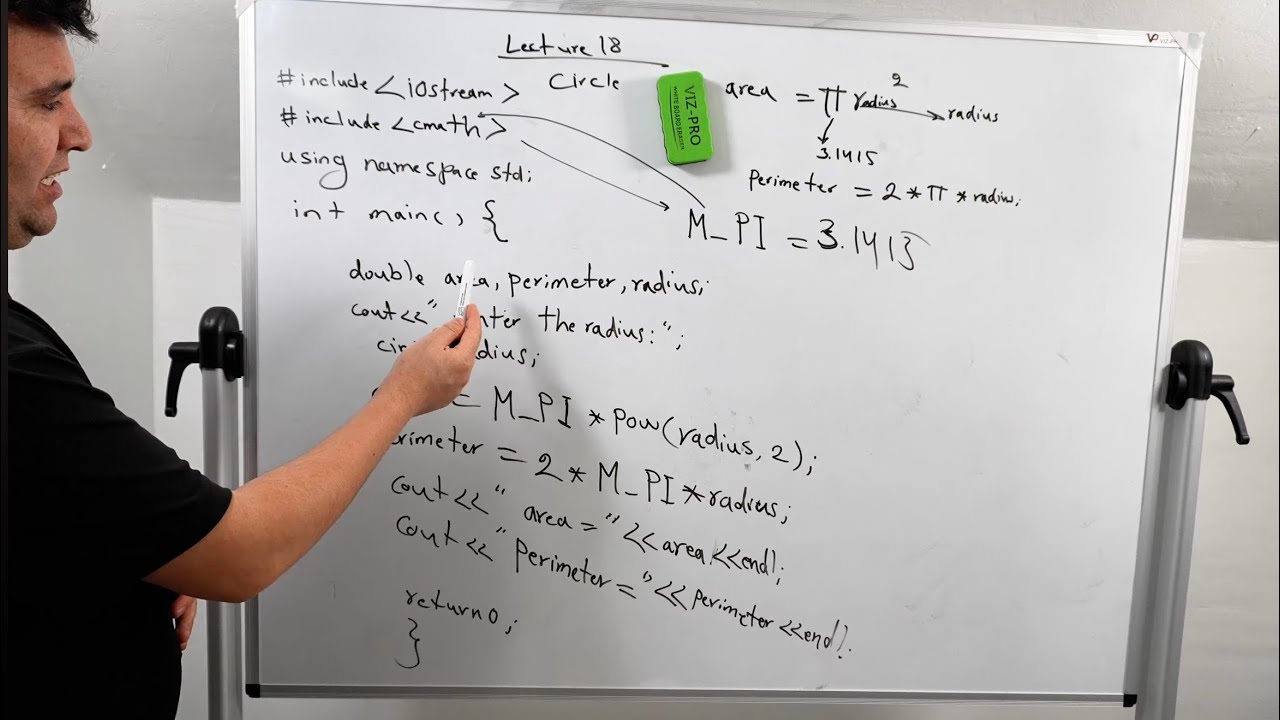 Lecture 18
Circle
#include <iostream>
#include <cmath>
using namespace std;
int main() {
double area, perimeter, radius;
cout<<" enter the radius:";
radius;
= M_PI * pow(radius, 2);
perimeter = 2 * M_PI * radius;
cout<<" area = "<<area<<endl;
cout<<" Perimeter = "<<perimeter<<endl.
return 0;
}
VIZ-PRO
WHITE BOARD ERASER
area = π radius 2
radius
3.1415
Perimeter = 2 * π * radius;
M_PI = 3.1415
VIZ-PRO